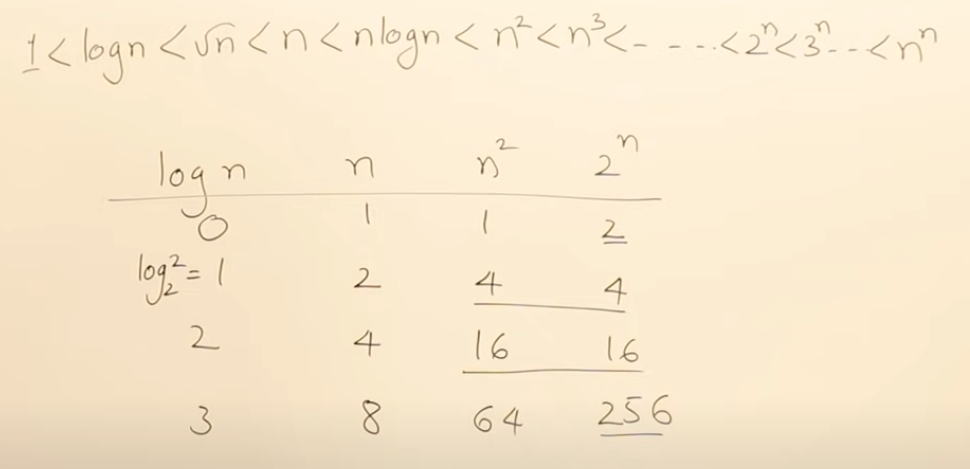 1 < log n < √n < n < n log n < n² < n³ < - - - .. < 2ⁿ < 3ⁿ -- < nⁿ
log n n n² 2ⁿ
0 1 1 2
log₂2 = 1 2 4 4
2 4 16 16
3 8 64 256